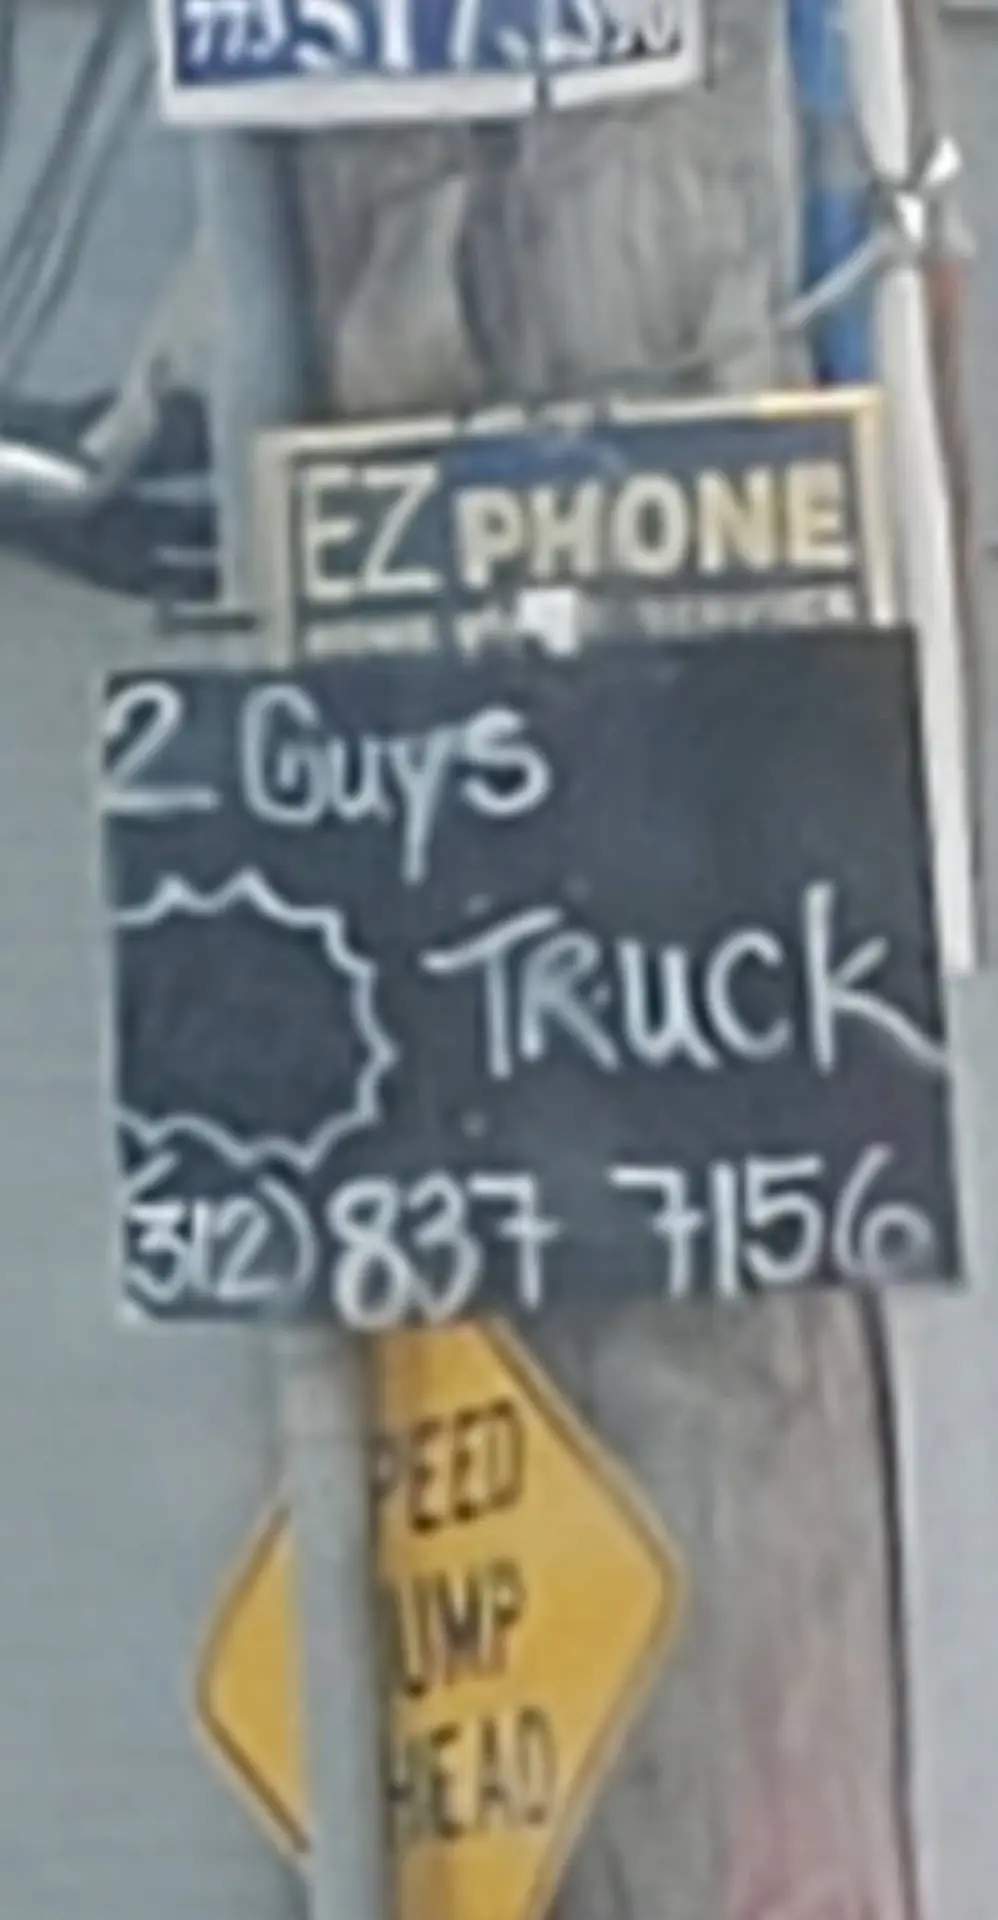 EZ PHONE
2 Guys
TRUCK
(312) 837 7156
PEED
UMP
HEAD